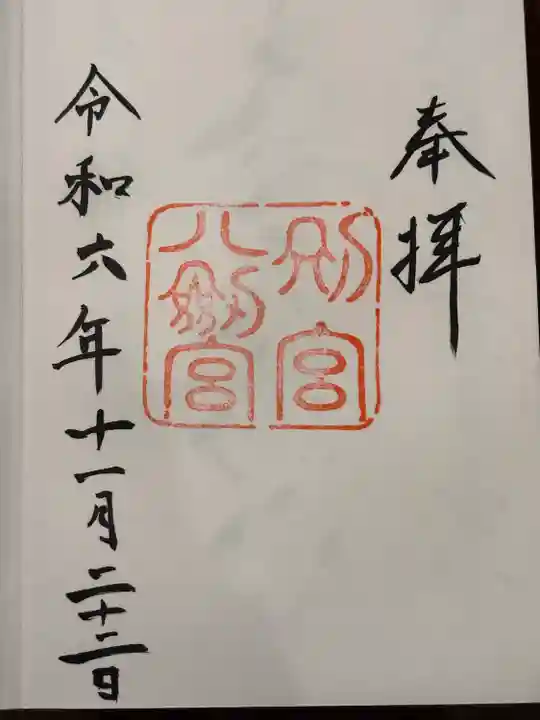 奉拝
別宮
八剱宮
令和六年十一月二十二日